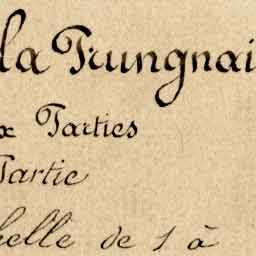 la Trungnai
x Parties
Partie
helle de 1 à